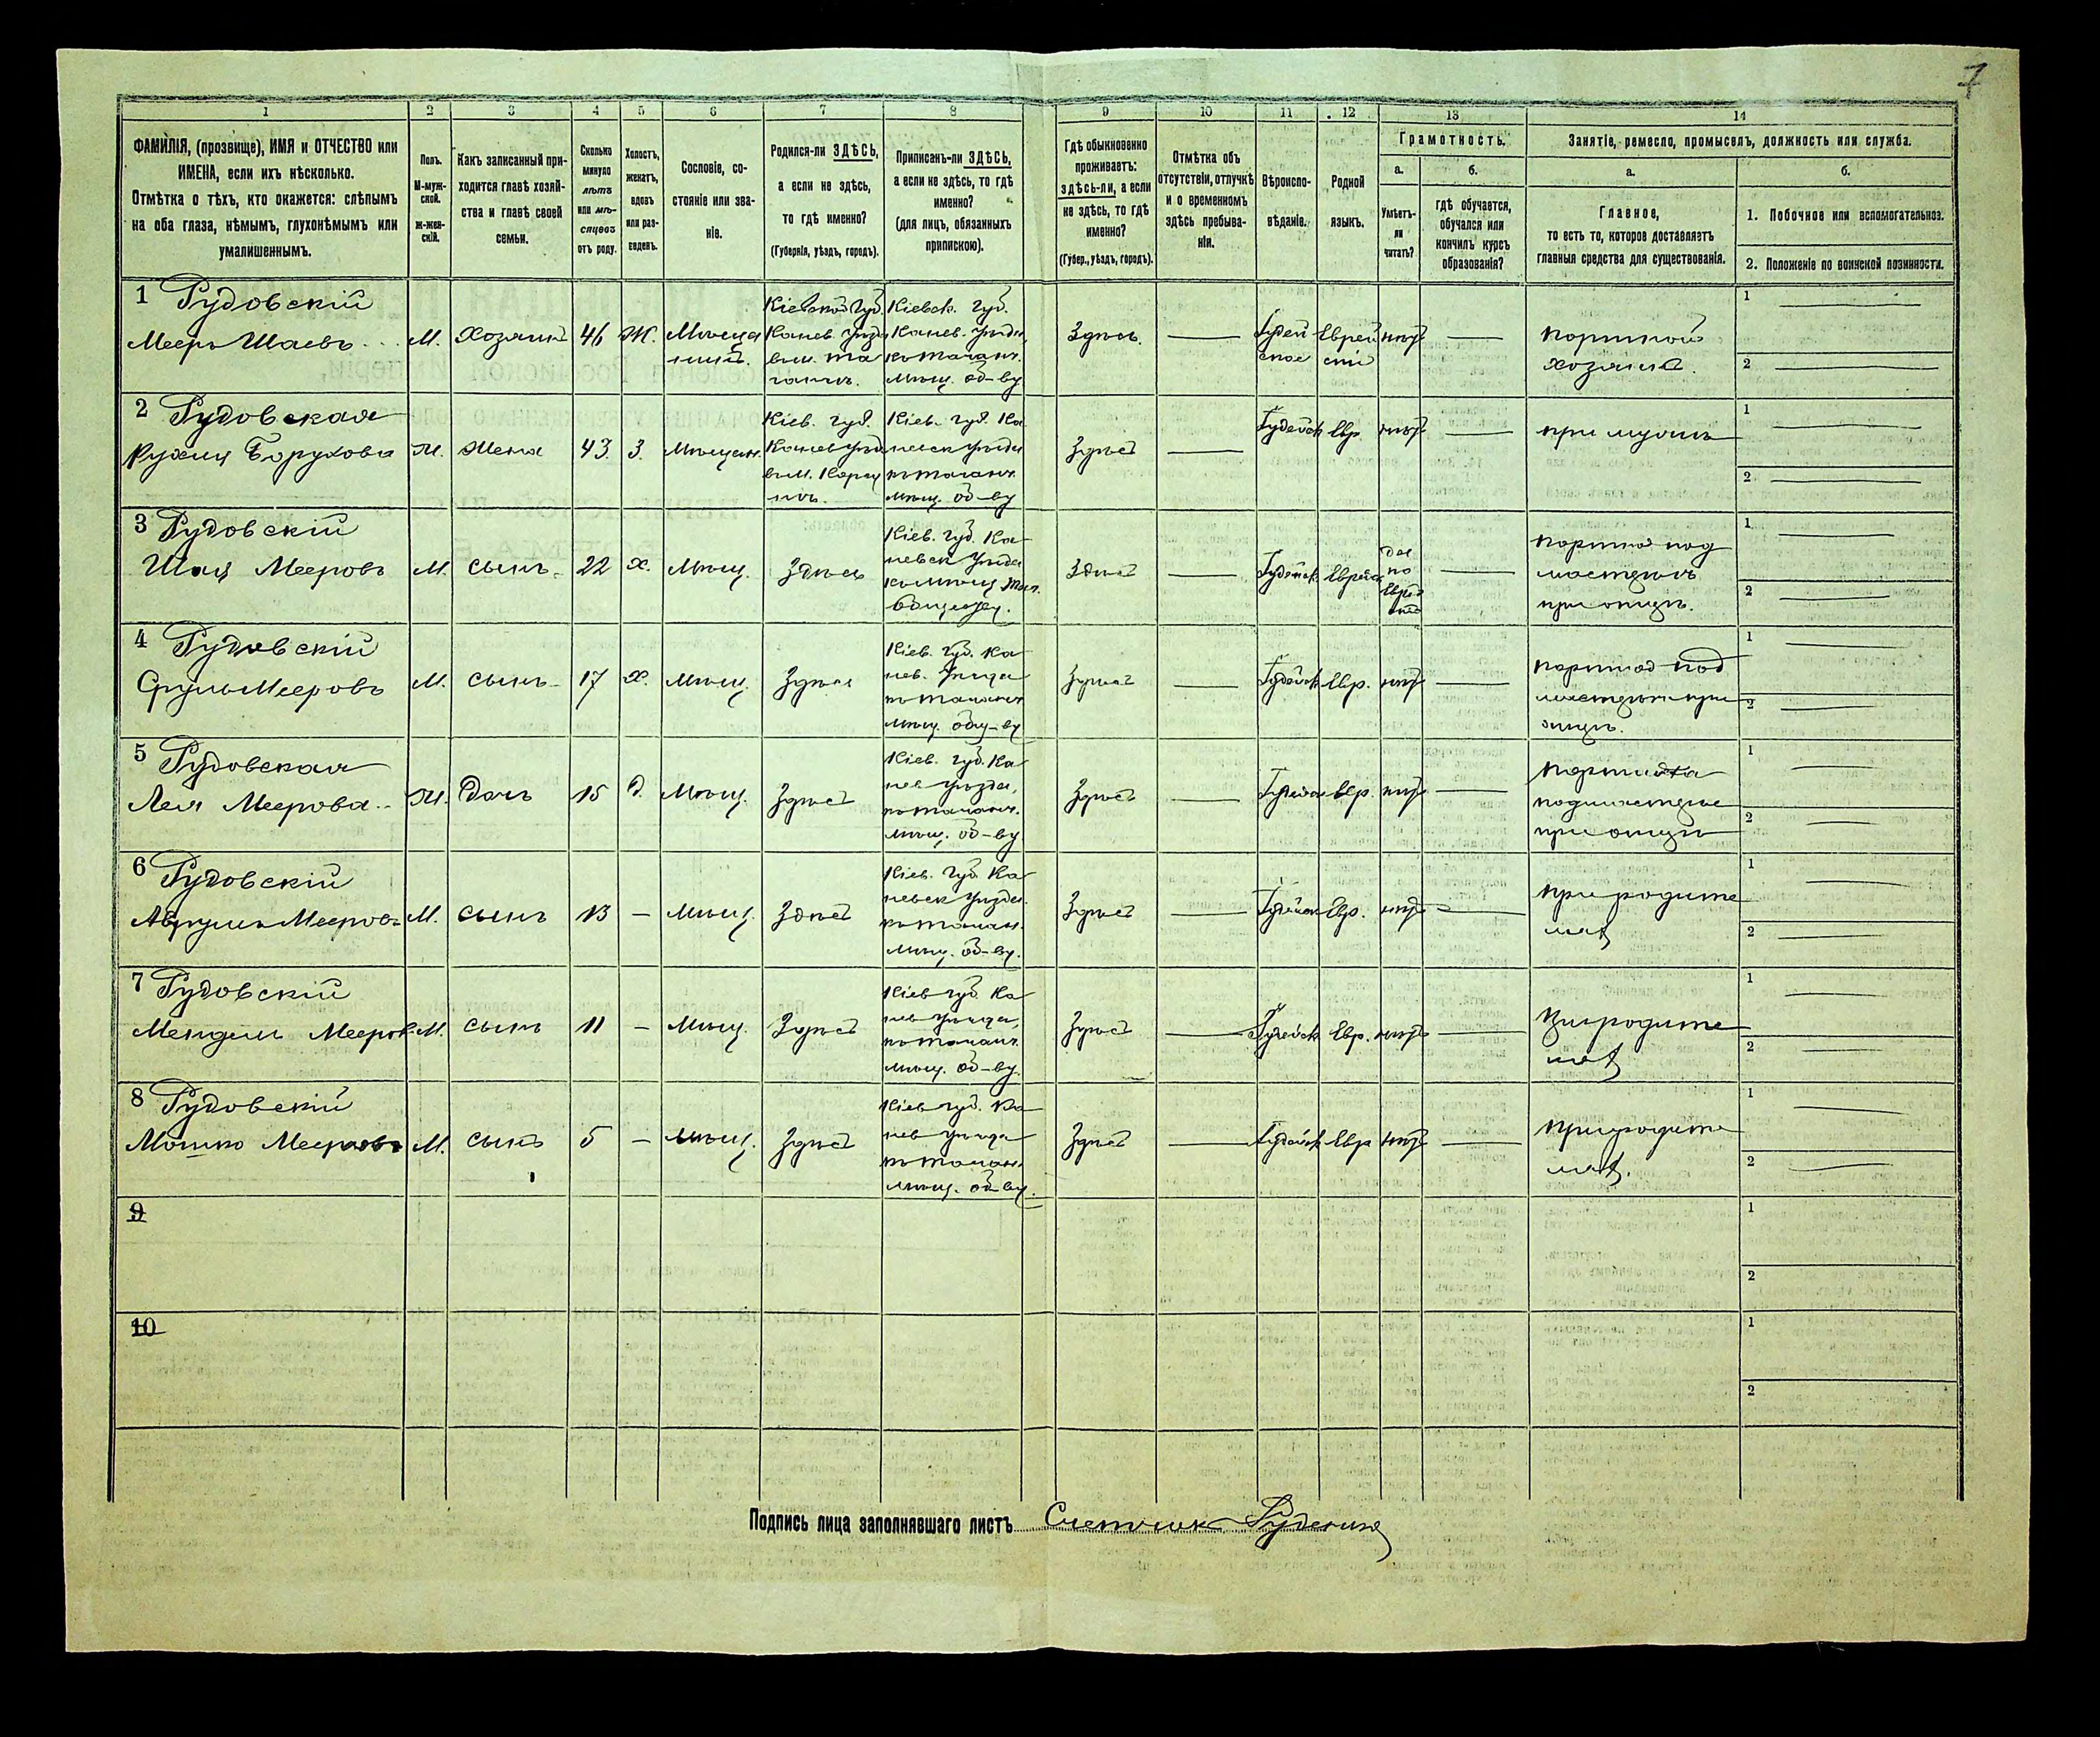 7
1 2 3 4 5 6 7 8 9 10 11 12 13 14
ФАМИЛІЯ, (прозвище), ИМЯ и ОТЧЕСТВО или
ИМЕНА, если ихъ нѣсколько.
Отмѣтка о тѣхъ, кто окажется: слѣпымъ
на оба глаза, нѣмымъ, глухонѣмымъ или
умалишеннымъ.
Полъ.
М-муж-
ской.
ж-жен-
скій.
Какъ записанный при-
ходится главѣ хозяй-
ства и главѣ своей
семьи.
Сколько
минуло
лѣтъ
или мѣ-
сяцевъ
отъ роду.
Холостъ,
женатъ,
вдовъ
или раз-
веденъ.
Сословіе, со-
стояніе или зва-
ніе.
Родился-ли ЗДѢСЬ,
а если не здѣсь,
то гдѣ именно?
(Губернія, уѣздъ, городъ).
Приписанъ-ли ЗДѢСЬ,
а если не здѣсь, то гдѣ
именно?
(для лицъ, обязанныхъ
припискою).
Гдѣ обыкновенно
проживаетъ:
здѣсь-ли, а если
не здѣсь, то гдѣ
именно?
(Губер., уѣздъ, городъ).
Отмѣтка объ
отсутствіи, отлучкѣ
и о временномъ
здѣсь пребыва-
ніи.
Вѣроиспо-
вѣданіе.
Родной
языкъ.
Грамотность.
а.
Умѣетъ-
ли
читать?
б.
гдѣ обучается,
обучался или
кончилъ курсъ
образованія?
Занятіе, ремесло, промыселъ, должность или служба.
а.
Главное,
то есть то, которое доставляетъ
главныя средства для существованія.
б.
1. Побочное или вспомогательное.
2. Положеніе по воинской повинности.
1 Рудовскій
Мееръ Шаевъ
М.
Хозяинъ
46
Ж.
Мѣща
нинъ.
Кіевской губ.
Канев. Уѣзда
въ м. Та
ганчѣ.
Кіевск. губ.
Канев. Уѣзда,
къ Таганч.
мѣщ. об-ву
Здѣсь.
Іудей
ское
Еврей
скій
нѣтъ
портной
хозяинъ.
1
2
2 Рудовская
Рухля Борухова
Ж.
жена
43
З.
Мѣщан.
Кіев. губ.
Канев Уѣзд
въ м. Корсу
нѣ.
Кіев. губ. Ка
невск Уѣзда
къ Таганч.
мѣщ. об-ву
Здѣсь
Іудейск
Евр
нѣтъ
при мужѣ
1
2
3 Рудовскій
Шая Мееровъ
М.
сынъ
22
Х.
мѣщ.
Здѣсь
Кіев. губ. Ка
невск Уѣзда
къ мѣщ Таг.
обществу.
Здѣсь
Іудейск
Еврейск
да
по
Еврей
ски
портной под
мастерье
при отцѣ.
1
2
4 Рудовскій
Сруль Мееровъ
М.
сынъ
17
Х.
мѣщ.
Здѣсь
Кіев. губ. Ка
нев. Уѣзда
къ Таганч
мѣщ. общ-ву
Здѣсь
Іудейск
Евр.
нѣтъ
портной под
мастерье при
отцѣ.
1
2
5 Рудовская
Лея Меерова
Ж.
Дочь
15
Д.
Мѣщ.
Здѣсь
Кіев. губ. Ка
нев Уѣзда,
къ Таганч.
мѣщ. об-ву
Здѣсь
Іудейск
Евр.
нѣтъ
портниха
подмастерье
при отцѣ
1
2
6 Рудовскій
Аврумъ Мееровъ
М.
сынъ
13
—
мѣщ.
Здѣсь
Кіев. губ Ка
невск Уѣзда
къ Таган.
мѣщ. об-ву.
Здѣсь
Іудейск
Евр.
нѣтъ
При родите
ляхъ
1
2
7 Рудовскій
Мендель Мееров
М.
сынъ
11
—
Мѣщ.
Здѣсь
Кіев губ. Ка
нев Уѣзда,
къ Таганч.
мѣщ. об-ву.
Здѣсь
Іудейск
Евр.
нѣтъ
При родите
ляхъ
1
2
8 Рудовскій
Мошко Мееровъ
М.
сынъ
5
—
мѣщ.
Здѣсь
Кіев губ. Ка
нев Уѣзда
къ Таган.
мѣщ. об-ву.
Здѣсь
Іудейск
Евр
нѣтъ
При родите
ляхъ.
1
2
9
1
2
10
1
2
Подпись лица заполнявшаго листъ Счетчикъ